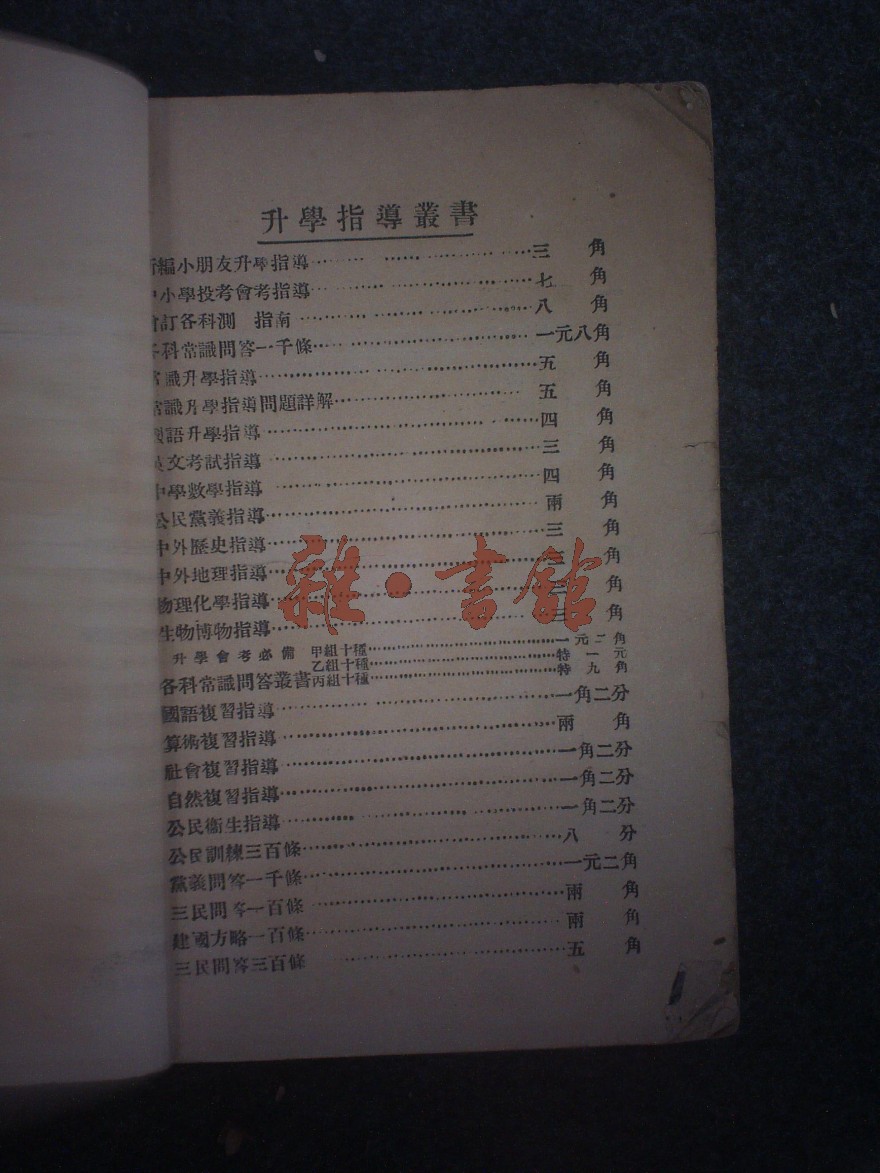 升學指導叢書
編小朋友升學指導 三角
小學投考會考指導 七角
訂各科測 指南 八角
科常識問答一千條 一元八角
識升學指導 五角
常識升學指導問題詳解 五角
語升學指導 四角
英文考試指導 三角
中學數學指導 四角
公民黨義指導 兩角
中外歷史指導 三角
中外地理指導 角
物理化學指導 角
生物博物指導 三角
升學會考必備 甲組十種 一元二角
乙組十種 特一元
各科常識問答叢書 丙組十種 特九角
國語複習指導 一角二分
算術複習指導 兩角
社會複習指導 一角二分
自然複習指導 一角二分
公民衞生指導 一角二分
公民訓練三百條 八分
黨義問答一千條 一元二角
三民問答一百條 兩角
建國方略一百條 兩角
三民問答三百條 五角
雜·書館